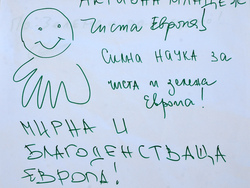 АКТИВНА МЛАДЕЖ
Чиста Европа!
Силна наука за
чиста и зелена
Европа!
МИРНА И
БЛАГОДЕНСТВАЩА
ЕВРОПА!